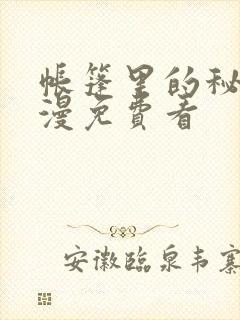 帐篷里的秘
漫免費看
安徽臨泉韦寨